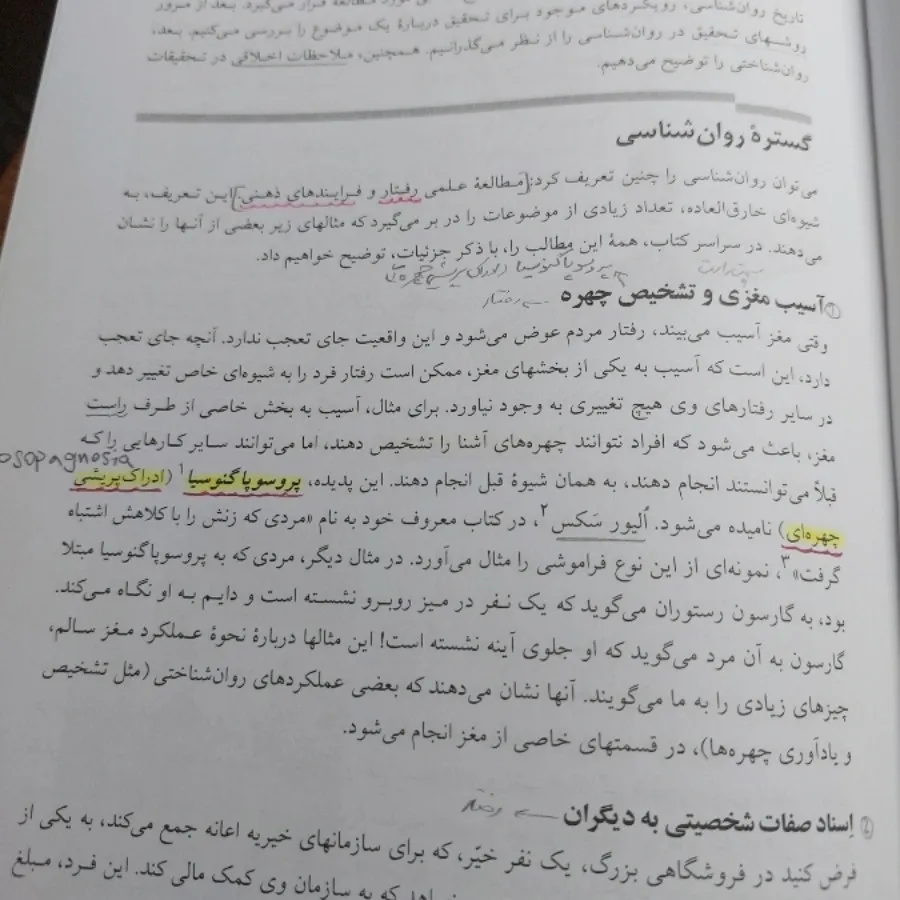 تاریخ روان‌شناسی، رویکردهای موجود برای تحقیق دربارهٔ یک موضوع را بررسی می‌کنیم. بعد،
روشهای تحقیق در روان‌شناسی را از نظر می‌گذرانیم. همچنین، ملاحظات اخلاقی در تحقیقات
روان‌شناختی را توضیح می‌دهیم.
گسترهٔ روان‌شناسی
می‌توان روان‌شناسی را چنین تعریف کرد: [مطالعهٔ علمی رفتار و فرایندهای ذهنی.] این تعریف، به
شیوه‌ای خارق‌العاده، تعداد زیادی از موضوعات را در بر می‌گیرد که مثالهای زیر بعضی از آنها را نشان
می‌دهند. در سراسر کتاب، همهٔ این مطالب را، با ذکر جزئیات، توضیح خواهیم داد.
پروسوپاگنوسیا (ادراک پریشی چهره‌ای)
① آسیب مغزی و تشخیص چهره ← رفتار
وقتی مغز آسیب می‌بیند، رفتار مردم عوض می‌شود و این واقعیت جای تعجب ندارد. آنچه جای تعجب
دارد، این است که آسیب به یکی از بخشهای مغز، ممکن است رفتار فرد را به شیوه‌ای خاص تغییر دهد و
در سایر رفتارهای وی هیچ تغییری به وجود نیاورد. برای مثال، آسیب به بخش خاصی از طرف راست
مغز، باعث می‌شود که افراد نتوانند چهره‌های آشنا را تشخیص دهند، اما می‌توانند سایر کارهایی را که
osopagnosia
قبلاً می‌توانستند انجام دهند، به همان شیوهٔ قبل انجام دهند. این پدیده، پروسوپاگنوسیا۱ (ادراک‌پریشی
چهره‌ای) نامیده می‌شود. اُلیور سَکس۲، در کتاب معروف خود به نام «مردی که زنش را با کلاهش اشتباه
گرفت»۳، نمونه‌ای از این نوع فراموشی را مثال می‌آورد. در مثال دیگر، مردی که به پروسوپاگنوسیا مبتلا
بود، به گارسون رستوران می‌گوید که یک نفر در میز روبرو نشسته است و دایم به او نگاه می‌کند.
گارسون به آن مرد می‌گوید که او جلوی آینه نشسته است! این مثالها دربارهٔ نحوهٔ عملکرد مغز سالم،
چیزهای زیادی را به ما می‌گویند. آنها نشان می‌دهند که بعضی عملکردهای روان‌شناختی (مثل تشخیص
و یادآوری چهره‌ها)، در قسمتهای خاصی از مغز انجام می‌شود.
② اِسناد صفات شخصیتی به دیگران ← رفتار
فرض کنید در فروشگاهی بزرگ، یک نفر خیّر، که برای سازمانهای خیریه اعانه جمع می‌کند، به یکی از
که به سازمان وی کمک مالی کند. این فرد، مبلغ